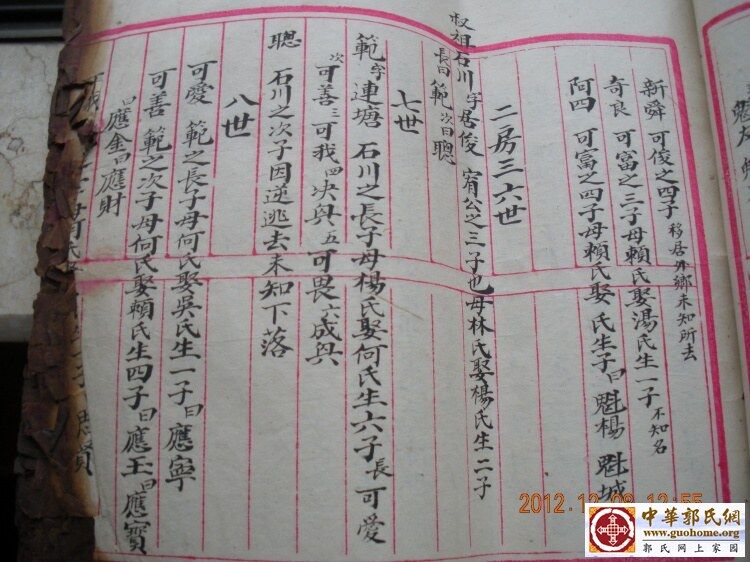 新舜 可俊之四子 移居外鄉未知所去
奇良 可富之三子母賴氏娶湯氏生一子 不知名
阿四 可富之四子母賴氏娶 氏生子曰魁楊 魁城
二房三六世
叔祖石川 字居俊 甯公之三子也母林氏娶楊氏生二子
長曰範 次曰聰
七世
範 字連塘 石川之長子母楊氏娶何氏生六子 長可愛
次可善 三可我 四央興 五可畏 六成興
聰 石川之次子因逆逃去未知下落
八世
可愛 範之長子母何氏娶吳氏生一子曰應寧
可善 範之次子母何氏娶賴氏生四子曰應玉曰應寶
曰應金曰應財
2012.12.08 12:55
中華郭氏網
www.guohome.org
郭氏网上家园